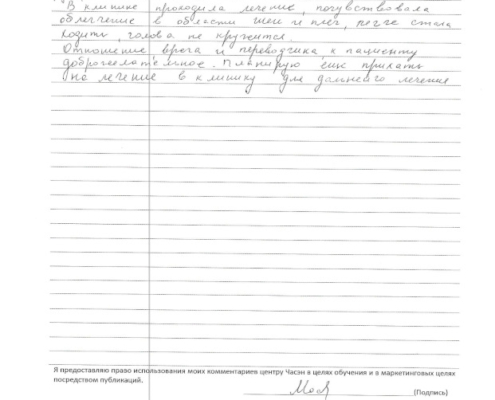 В клинике проходила лечение, почувствовала
облегчение в области шеи и плеч, легче стала
ходить, голова не кружится.
Отношение врача и переводчика к пациенту
доброжелательное. Планирую еще приехать
на лечение в клинику для дальнего лечения
Я предоставляю право использования моих комментариев центру Часэн в целях обучения и в маркетинговых целях
посредством публикаций.
(Подпись)